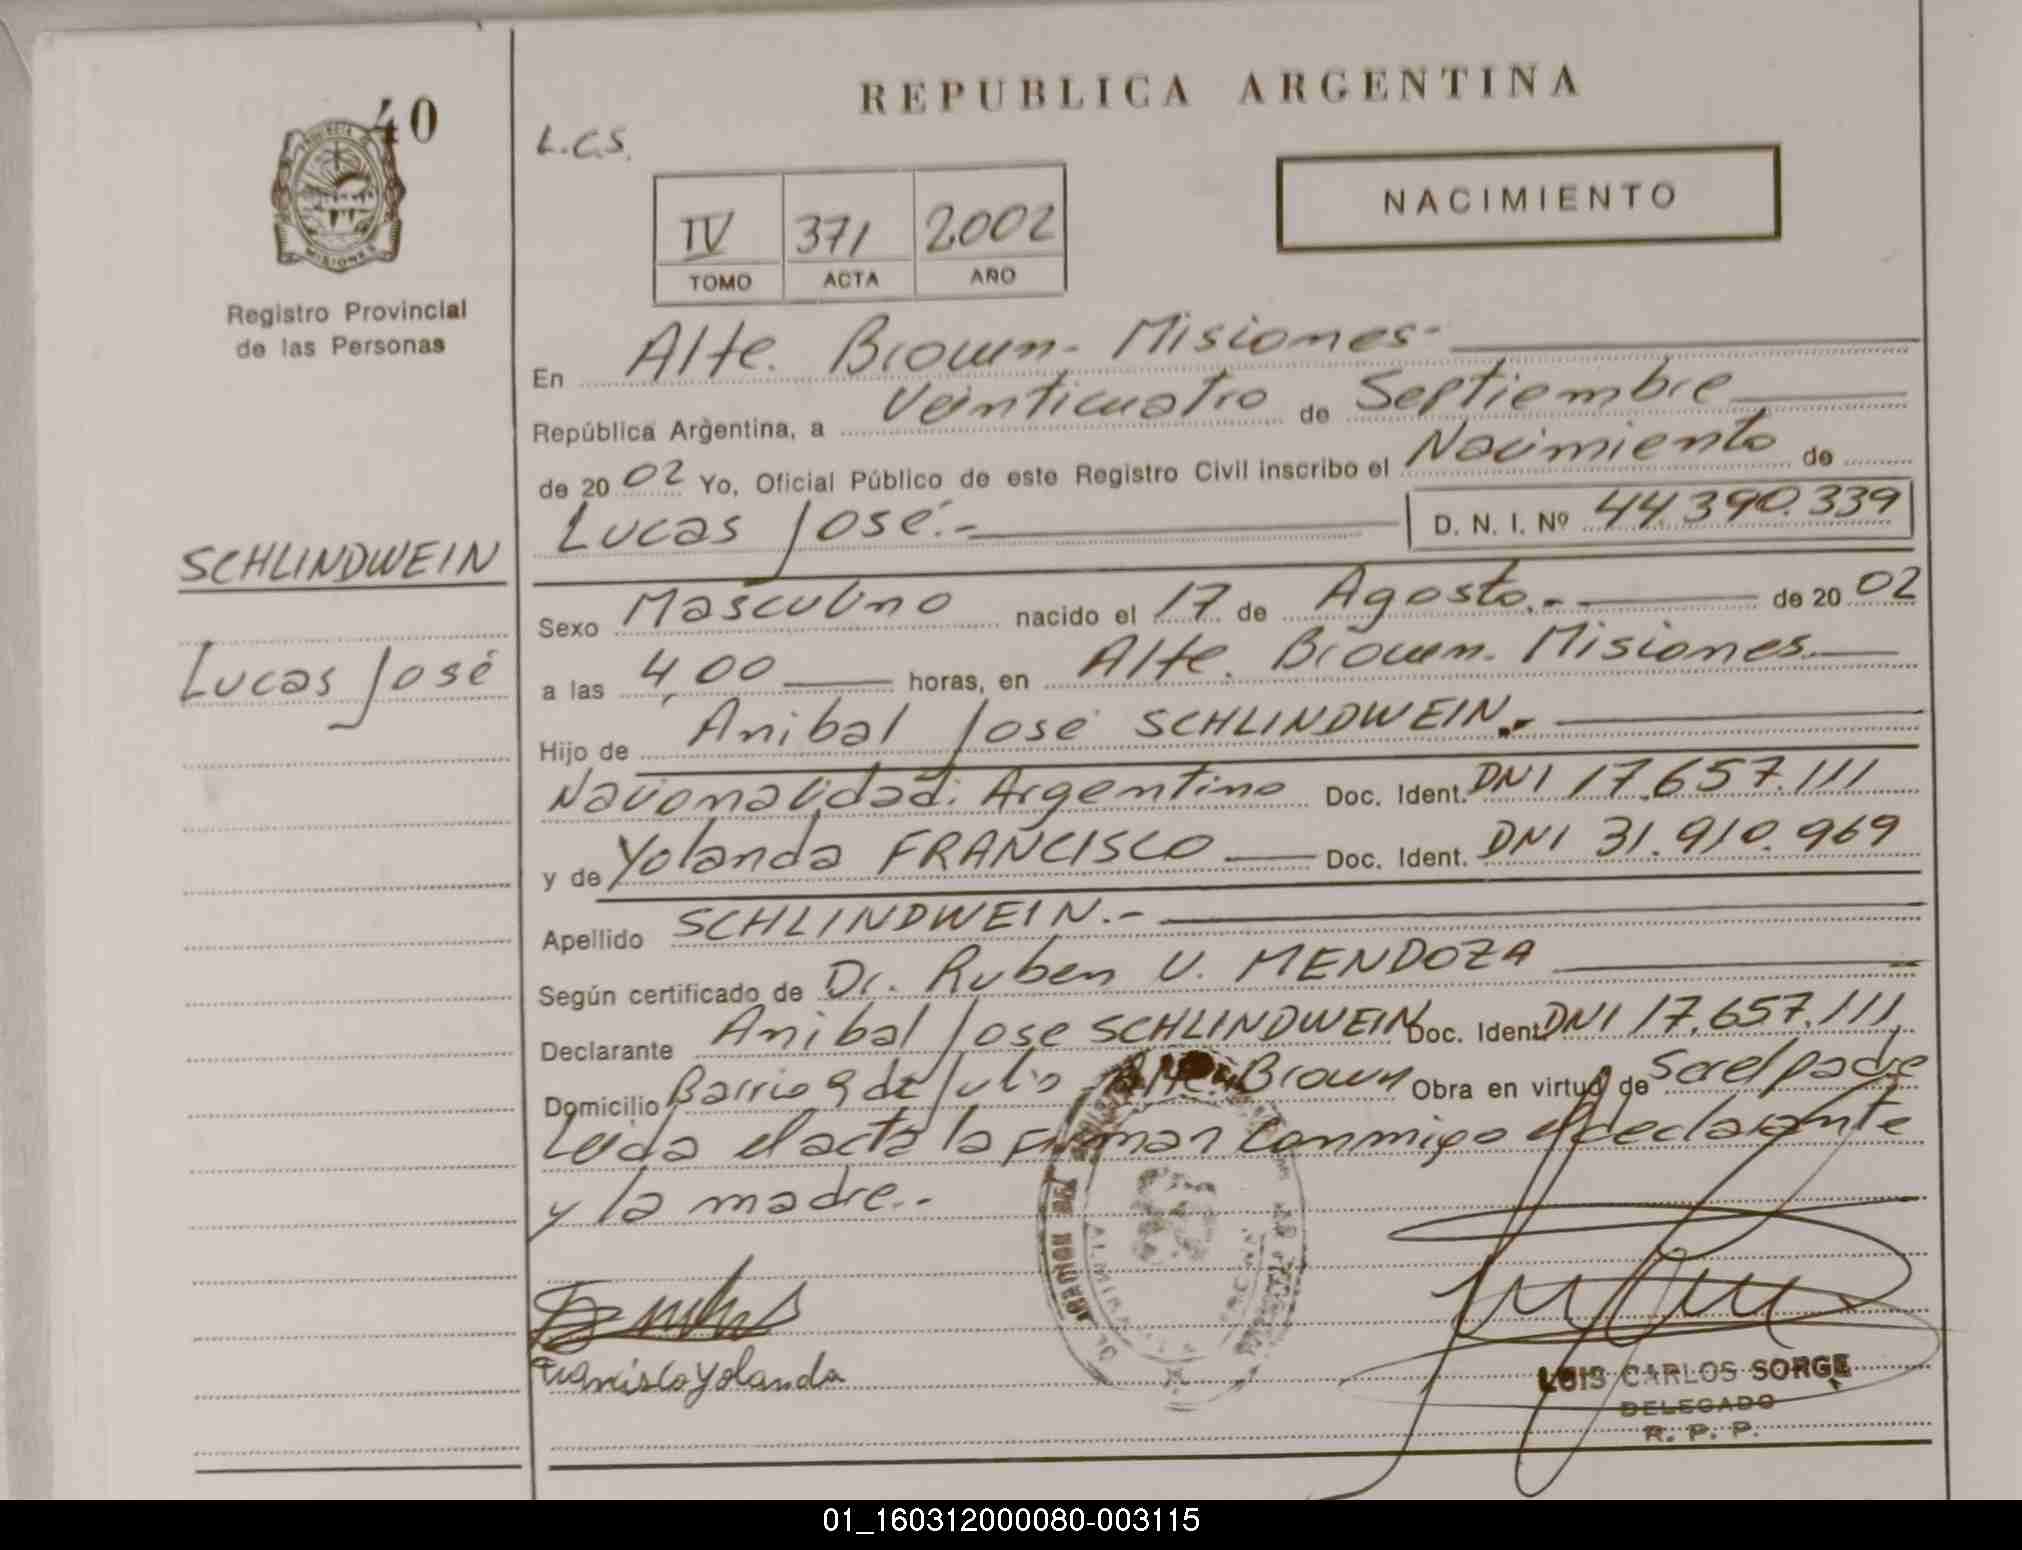 40
PROVINCIA
MISIONES
Registro Provincial
de las Personas
SCHLINDWEIN
Lucas José
REPUBLICA ARGENTINA
L.C.S.
NACIMIENTO
IV 371 2002
TOMO ACTA AÑO
En Alte. Brown - Misiones -
República Argentina, a Veinticuatro de Septiembre
de 2002 Yo, Oficial Público de este Registro Civil inscribo el Nacimiento de
Lucas José.- D. N. I. Nº 44.390.339
Sexo Masculino nacido el 17 de Agosto.- de 2002
a las 4,00 horas, en Alte. Brown. Misiones.
Hijo de Anibal José SCHLINDWEIN.-
Nacionalidad: Argentino Doc. Ident. DNI 17.657.111
y de Yolanda FRANCISCO Doc. Ident. DNI 31.910.969
Apellido SCHLINDWEIN.-
Según certificado de Dr. Ruben U. MENDOZA
Declarante Anibal Jose SCHLINDWEIN Doc. Ident. DNI 17.657.111
Domicilio Barrio 9 de Julio - Alte. Brown Obra en virtud de Ser el padre
Leida el acta la firman conmigo el declarante
y la madre.-
Francisco Yolanda
LUIS CARLOS SORGE
DELEGADO
R. P. P.
01_160312000080-003115